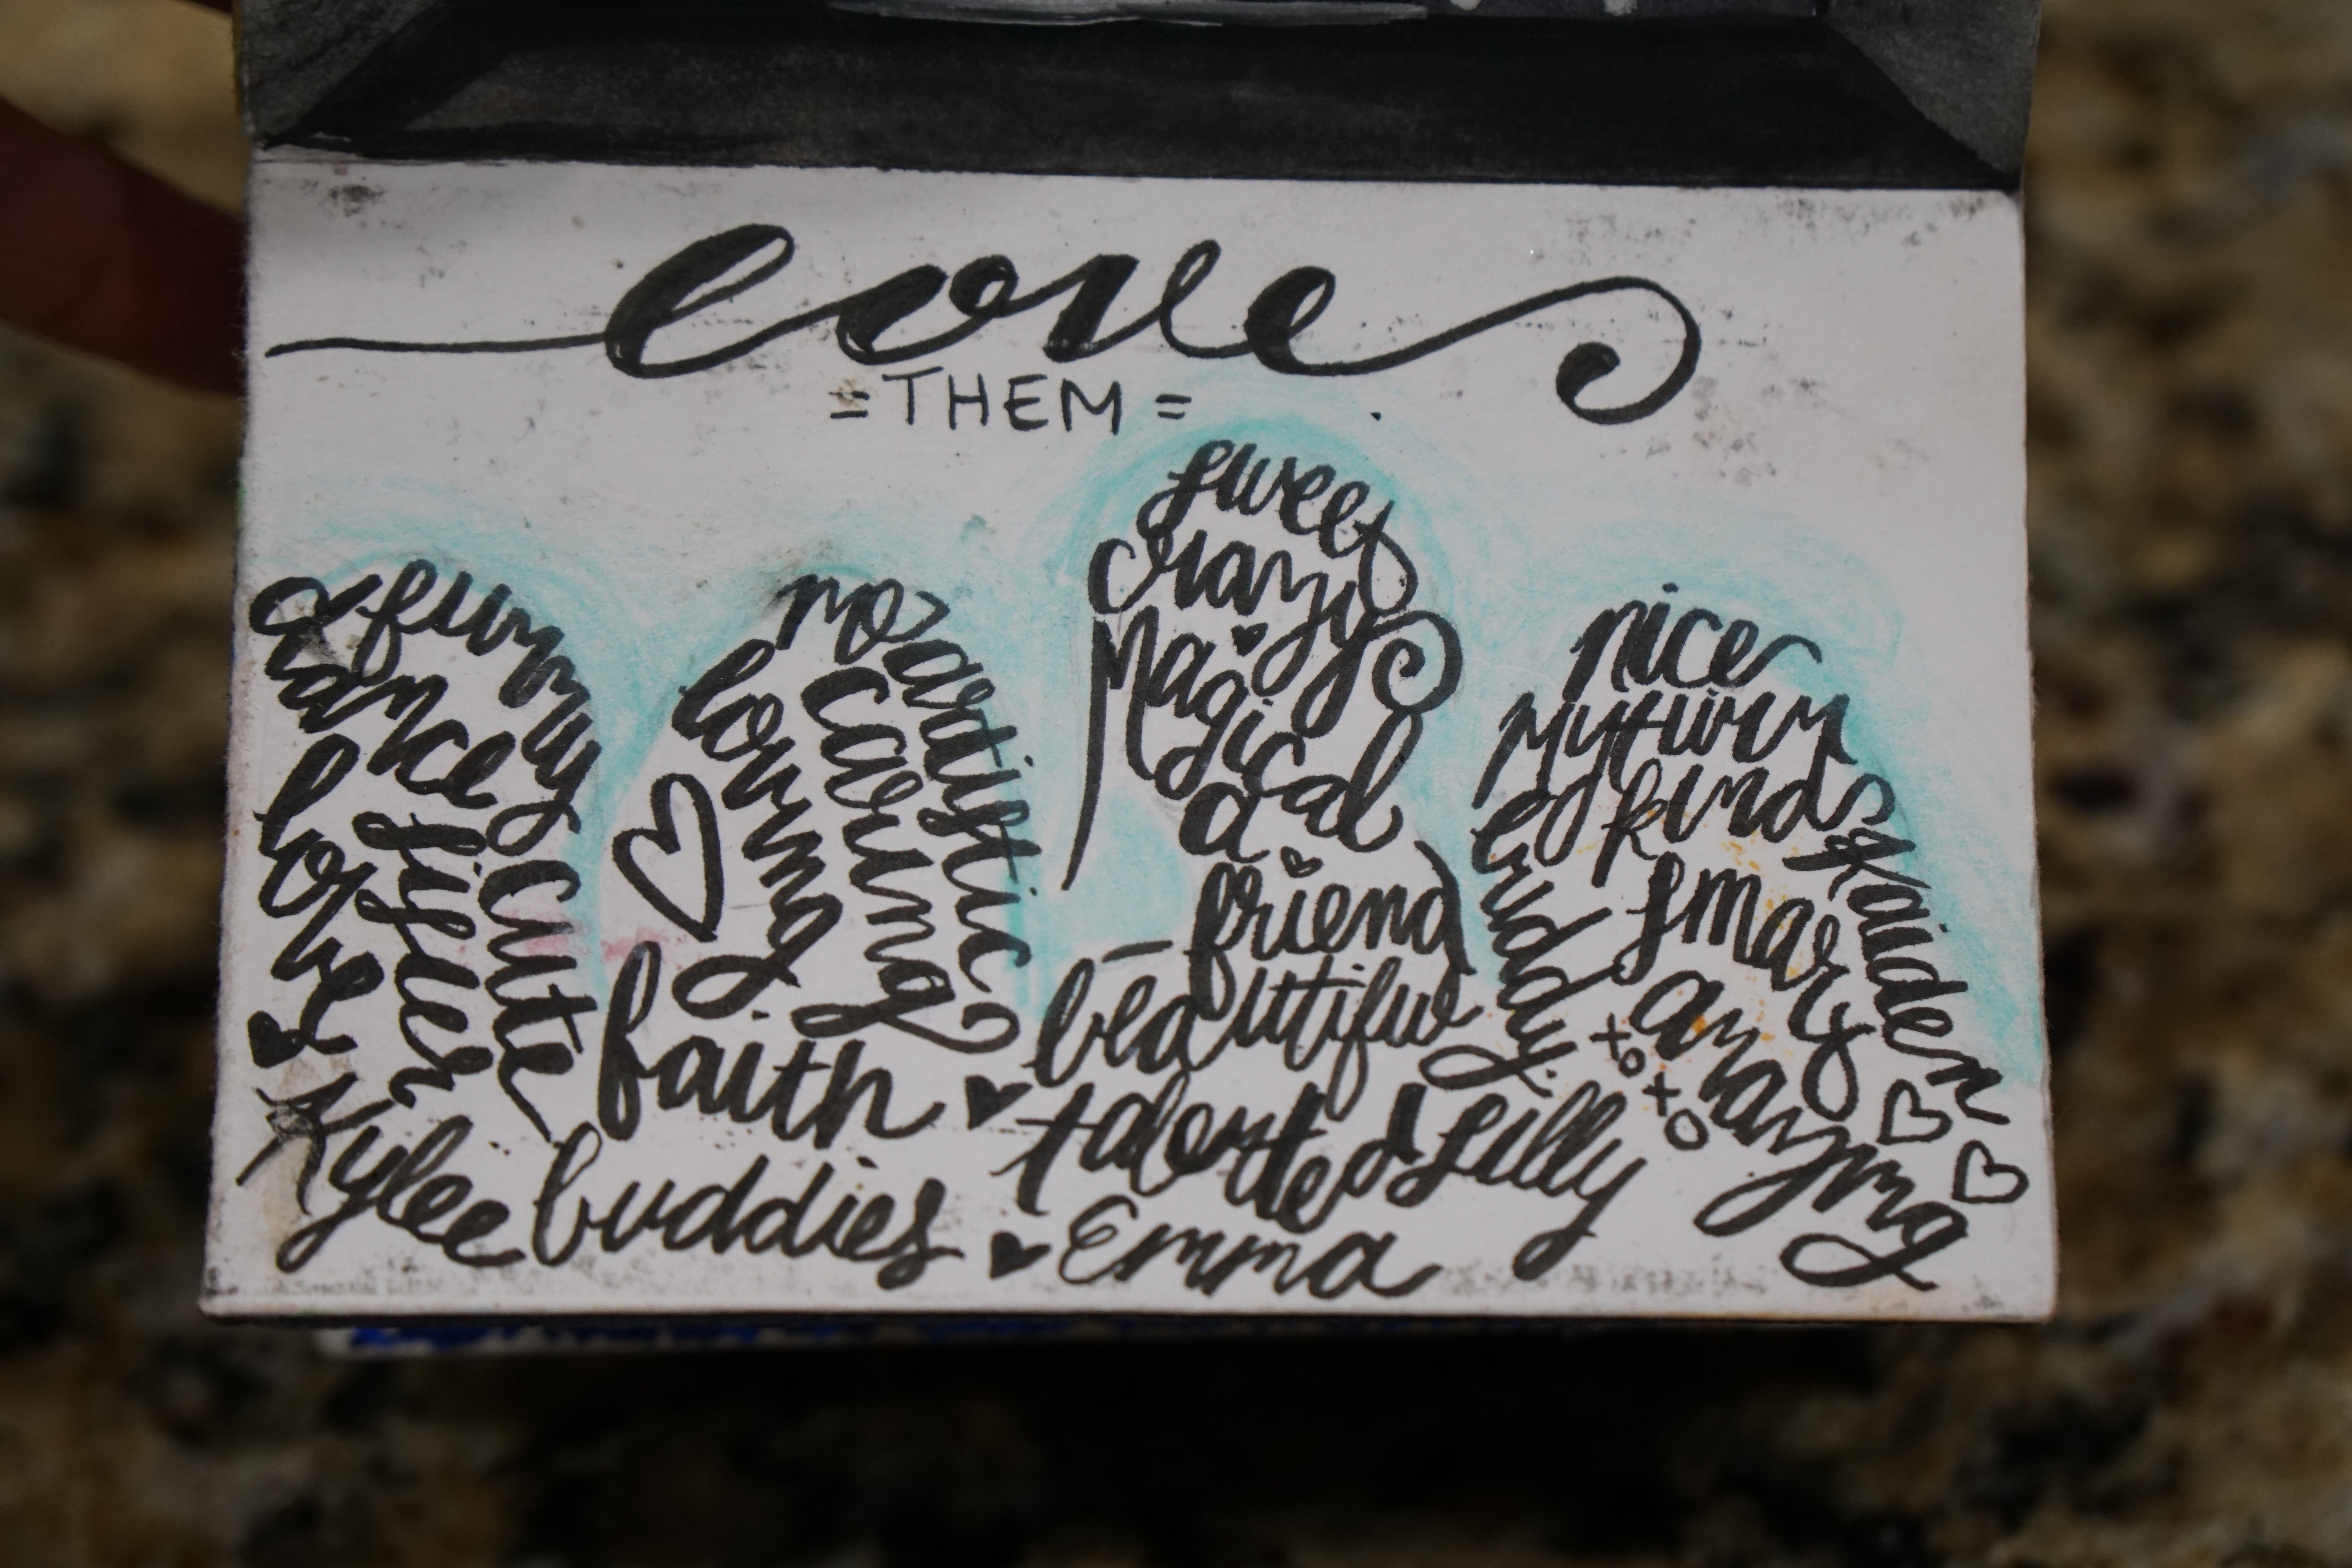 love
=THEM=
a funny
dance
love
lifter
cute
Kylee
loving
caring
artistic
faith
buddies
sweet
crazy
Magical
a
friend
beautiful
talented
Emma
nice
kind
buddy
smart
Kaiden
xoxo
amazing
& Lilly